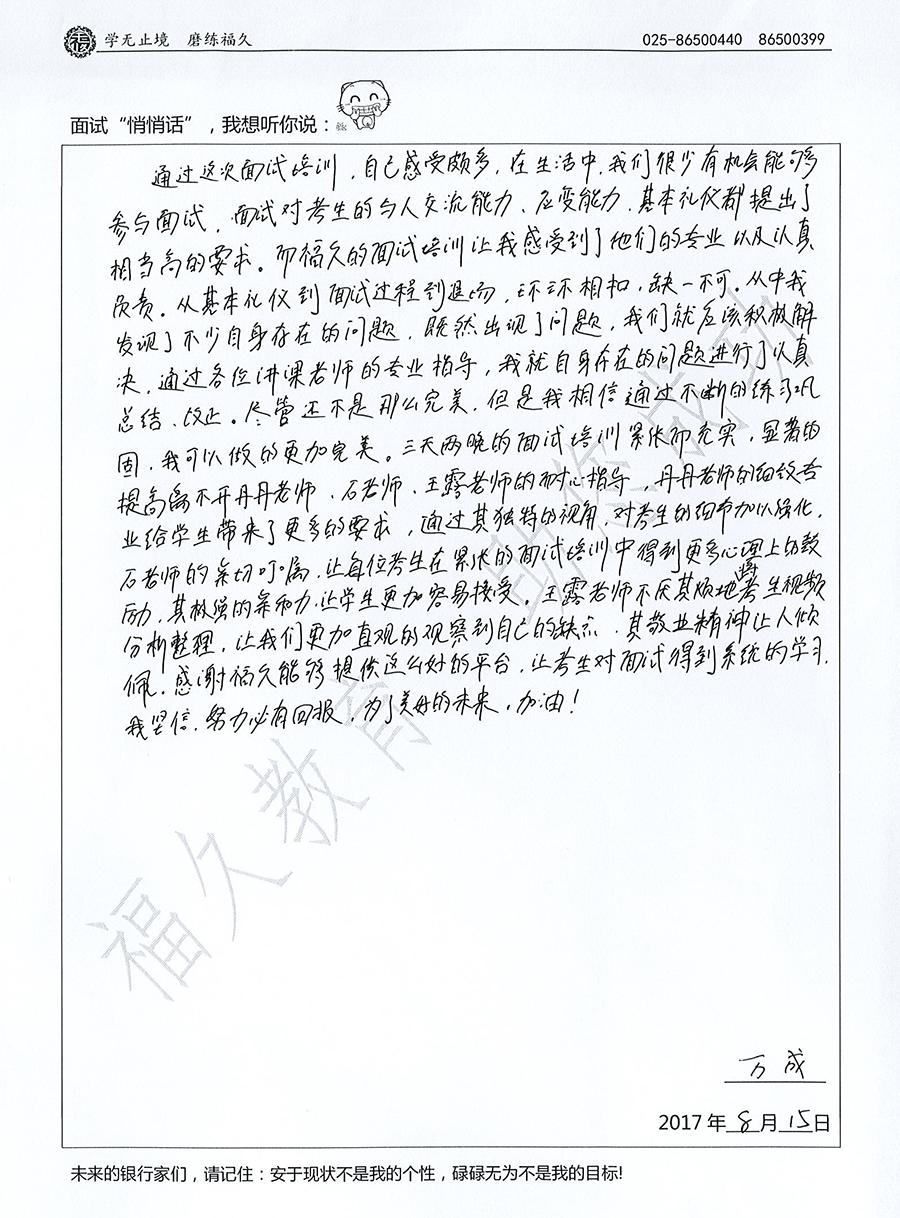 学无止境 磨练福久
025-86500440 86500399
面试“悄悄话”，我想听你说：
通过这次面试培训，自己感受颇多，在生活中，我们很少有机会能够多
参与面试，面试对考生的与人交流能力、应变能力、基本礼仪都提出了
相当高的要求。而福久的面试培训让我感受到了他们的专业以及认真
负责。从基本礼仪到面试过程到退场，环环相扣，缺一不可。从中我
发现了不少自身存在的问题，既然出现了问题，我们就应该积极解
决，通过各位讲课老师的专业指导，我就自身存在的问题进行了认真
总结、改正。尽管还不是那么完美，但是我相信通过不断的练习巩
固，我可以做的更加完美。三天两晚的面试培训紧张而充实，显著的
提高离不开丹丹老师、石老师、王露老师的耐心指导，丹丹老师的细致专
业给学生带来了更多的要求，通过其独特的视角，对考生的细节加以强化，
石老师的亲切叮嘱，让每位考生在紧张的面试培训中得到更多心理上的鼓
励，其极强的亲和力，让学生更加容易接受。王露老师不厌其烦地将考生视频
分析整理，让我们更加直观的观察到自己的缺点，其敬业精神让人倾
佩。感谢福久能够提供这么好的平台，让考生对面试得到系统的学习，
我坚信，努力必有回报，为了美好的未来，加油！
福久教育 助您成功
万成
2017年8月15日
未来的银行家们，请记住：安于现状不是我的个性，碌碌无为不是我的目标!